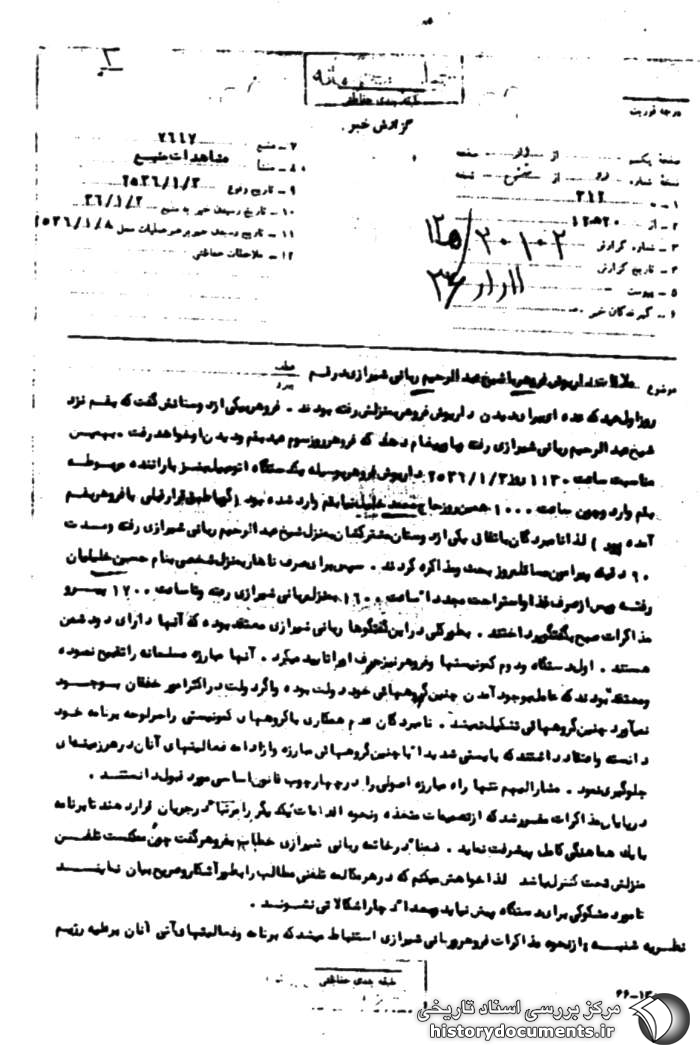 طبقه بندی حفاظتی
گزارش خبر
درجه فوریت
صفحه یکم از صفحه
نسخه شماره از نسخه
۱ ـ به ۳۱۲
۲ ـ از
۳ ـ شماره گزارش
۴ ـ تاریخ گزارش
۵ ـ پیوست
۶ ـ گیرندگان خبر
۷ ـ منبع
۸ ـ منشأ مشاهدات منبع
۹ ـ تاریخ وقوع ۲۵۳۶/۱/۳
۱۰ ـ تاریخ رسیدن خبر به منبع
۱۱ ـ تاریخ رسیدن خبر به رهبر عملیات محل ۲۵۳۶/۱/۸
۱۲ ـ ملاحظات حفاظتی
موضوع ملاقات داریوش فروهر با شیخ عبدالرحیم ربانی شیرازی در قم
روز اول عید که عده ای برای دیدن داریوش فروهر بمنزلش رفته بودند . فروهر بیکی از دوستانش گفت که بقم نزد
شیخ عبدالرحیم ربانی شیرازی رفته و باو پیغام دهد که فروهر روز سوم عید بقم و دیدن او خواهد رفت . بهمین
مناسبت ساعت ۱۱۳۰ روز ۲۵۳۶/۱/۳ داریوش فروهر بوسیله یک دستگاه اتومبیل بنز با راننده مربوطه
بقم وارد و چون ساعت ۱۰۰۰ همین روز حاج محمد خلیل نیا بقم وارد شده بود ( گویا طبق قرار قبلی با فروهر بقم
آمده بود ) لذا نامبردگان باتفاق یکی از دوستان مشترکشان بمنزل شیخ عبدالرحیم ربانی شیرازی رفته و مدت
۹۰ دقیقه پیرامون مسائل روز بحث و مذاکره کردند . سپس برای صرف ناهار بمنزل شخصی بنام حسین خلیلیان
رفته و پس از صرف غذا و استراحت مجددا ساعت ۱۶۰۰ بمنزل ربانی شیرازی رفته و تا ساعت ۱۷۰۰ پیرو
مذاکرات صبح بگفتگو پرداختند . بطور کلی در این گفتگوها ربانی شیرازی معتقد بوده که آنها دارای دو دشمن
هستند . اولی دستگاه و دوم کمونیستها و فروهر نیز حرف او را تایید میکرد . آنها مبارزه مسلحانه را تقبیح نموده
و معتقد بودند که عامل بوجود آمدن چنین گروههائی خود دولت بوده و اگر دولت در اکثر امور خفقان بوجود
نمیآورد چنین گروههائی تشکیل نمیشد . نامبردگان عدم همکاری با گروههای کمونیستی را سرلوحه برنامه خود
دانسته و اعتقاد داشتند که بایستی شدیدا با چنین گروههائی مبارزه و از ادامه فعالیتهای آنان در هر زمینه ای
جلوگیری نمود . مشارالیهم تنها راه مبارزه اصولی را در چهارچوب قانون اساسی مورد قبول دانستند .
در پایان مذاکرات مقرر شد که از تصمیمات متخذه و نحوه اقدامات یکدیگر را مرتبا در جریان قرار دهند تا برنامه
با یک هماهنگی کامل پیشرفت نماید . ضمنا در خاتمه ربانی شیرازی خطاب بفروهر گفت چون ممکنست تلفن
منزلش تحت کنترل باشد لذا خواهش میکنم که در هر مکالمه تلفنی مطالب را بطور آشکار و صریح بیان نمایند
تا مورد مشکوکی برای دستگاه پیش نیاید و بعدا دچار اشکالاتی نشوند .
نظریه شنبه : از نحوه مذاکرات فروهر و ربانی شیرازی استنباط میشد که برنامه و فعالیتهای آتی آنان بر علیه رژیم
طبقه بندی حفاظتی
مرکز بررسی اسناد تاریخی
historydocuments.ir